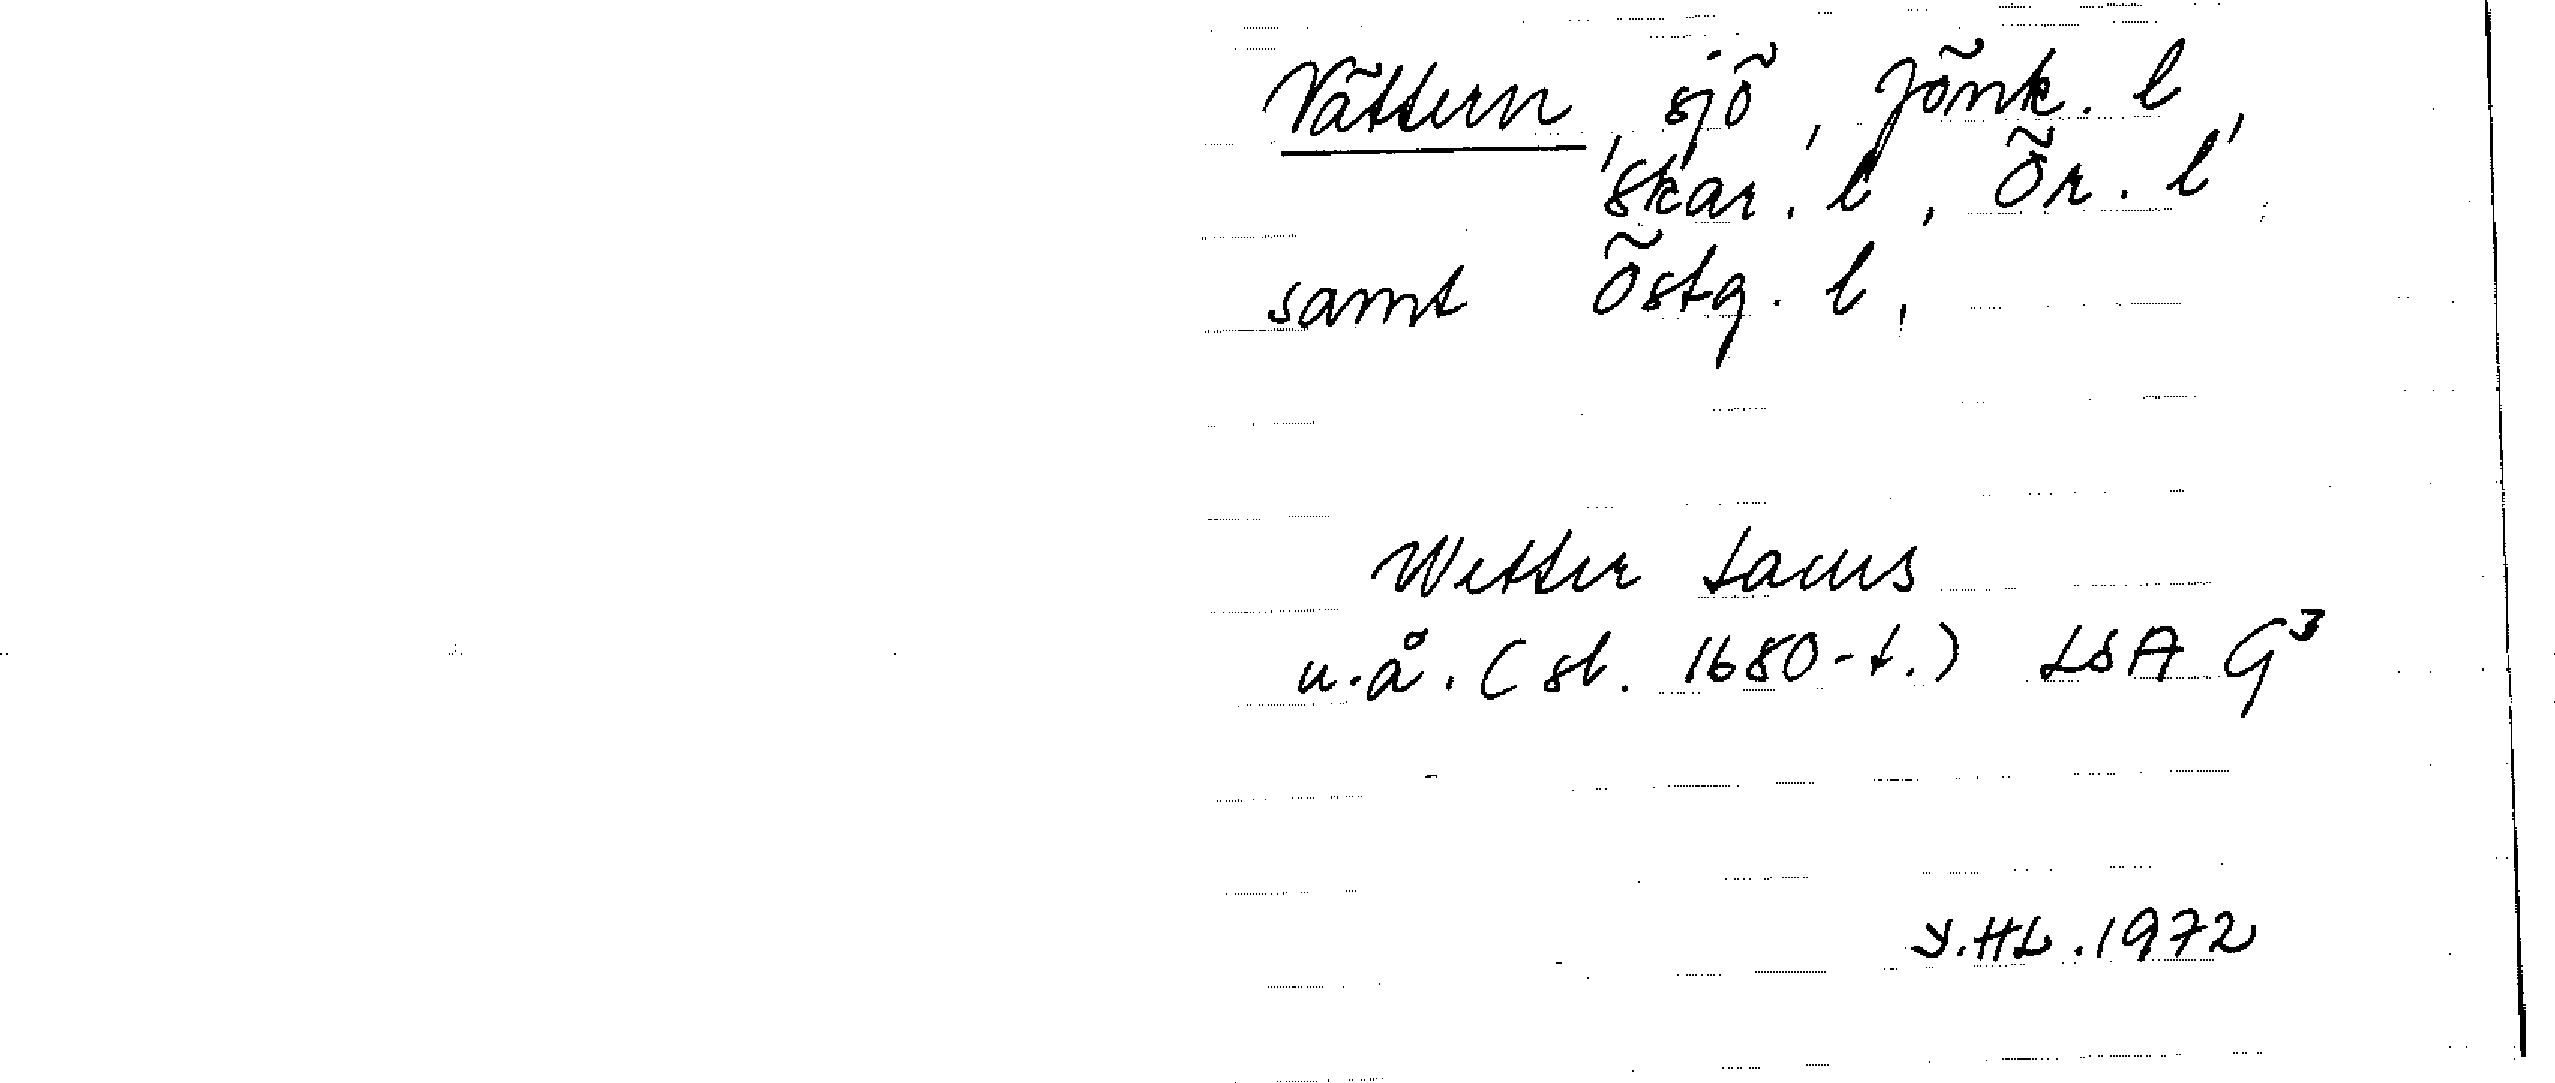 Vättern, sjö, Jönk. l,
Skar. l, Ör. l,
samt Östg. l,
Wetter Lacus
u.å. (sl. 1680-t.) LSA G³
Y.HL.1972